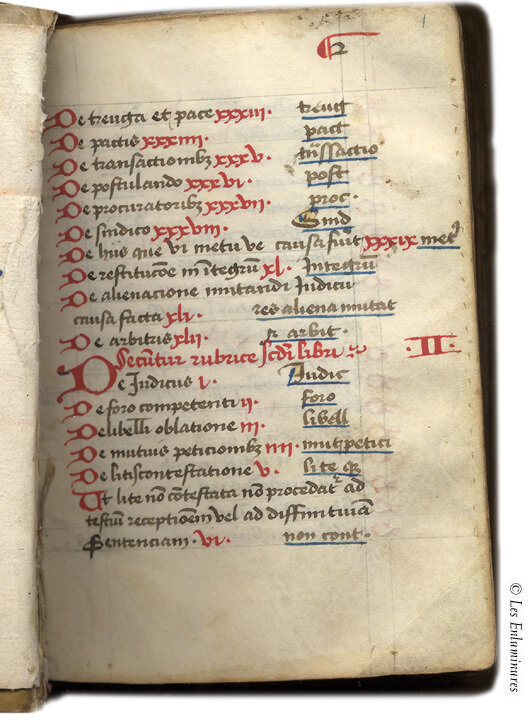 2
De treuga et pace xxxiii. treug
De pactis xxxiiii. pact
De transactionibz xxxv. trassactio
De postulando xxxvi. post
De procuratoribz xxxvii. proc.
De sindico xxxviii. Sind
De hiis que vi metu ve causa fiut xxxix met
De restitucoe in integru xl. Integru
De alienacione mutandi Iudicii
causa facta xli. res aliena mutat
De arbitris xlii. arbit.
Secuntur rubrice scdi libri .II.
De Iudiciis i. Iudic
De foro competenti ii. foro
De libelli oblatione iii. libell
De mutuis peticionibz iiii. mut petici
De litis contestatione v. lite
Ut lite no cotestata no procedat ad
testiu receptioem vel ad diffinitiva
Sentenciam .vi. non cont.
© Les Enluminures